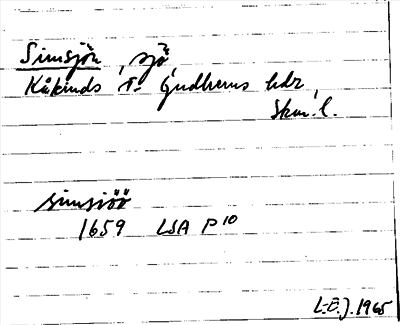 Simsjön, sjö,
Kåkinds o. Gudhems hdr,
Skar. l.
simsiöö
1659 LSA P 10
L-E.J. 1965